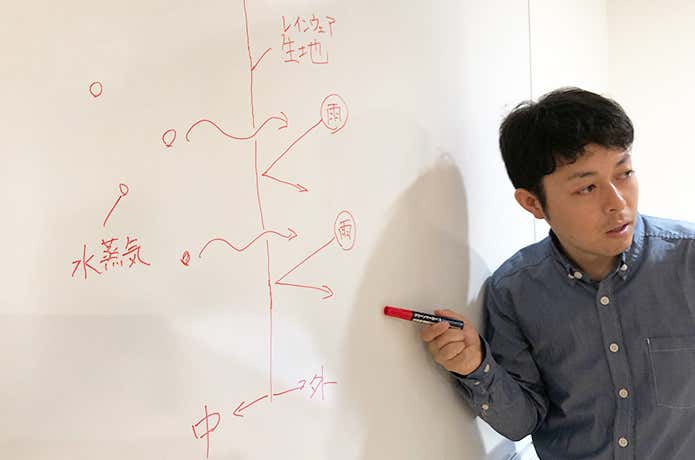 レインウェア
生地
雨
雨
水蒸気
外
中